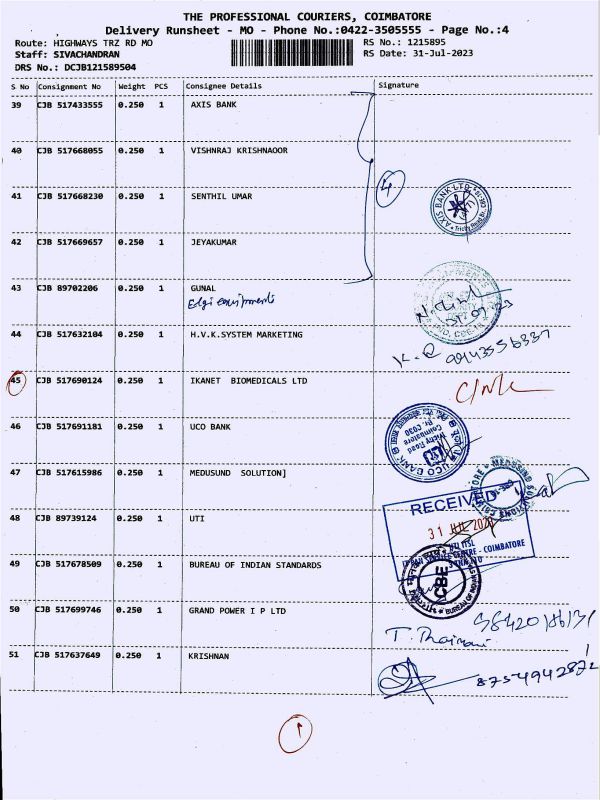 THE PROFESSIONAL COURIERS, COIMBATORE
Delivery Runsheet - MO - Phone No.:0422-3505555 - Page No.:4
Route: HIGHWAYS TRZ RD MO
RS No.: 1215895
Staff: SIVACHANDRAN
RS Date: 31-Jul-2023
DRS No.: DCJB121589504
S No Consignment No Weight PCS Consignee Details Signature
39 CJB 517433555 0.250 1 AXIS BANK
40 CJB 517668055 0.250 1 VISHNRAJ KRISHNAOOR
4
41 CJB 517668230 0.250 1 SENTHIL UMAR
AXIS BANK LTD.
42 CJB 517669657 0.250 1 JEYAKUMAR
43 CJB 89702206 0.250 1 GUNAL
Elgi equipments
44 CJB 517632104 0.250 1 H.V.K.SYSTEM MARKETING
45 CJB 517690124 0.250 1 IKANET BIOMEDICALS LTD
46 CJB 517691181 0.250 1 UCO BANK
UCO BANK
Trichy Road
Coimbatore
47 CJB 517615986 1 MEDUSUND SOLUTION]
0.250
RECEIVED
48 CJB 89739124 0.250 1 UTI
31 JUL
UTI ITSL
CENTRE - COIMBATORE
49 CJB 517678509 0.250 1 BUREAU OF INDIAN STANDARDS
CBE
BUREAU OF INDIAN
50 CJB 517699746 0.250 1 GRAND POWER I P LTD
51 CJB 517637649 0.250 1 KRISHNAN
8754942872
1